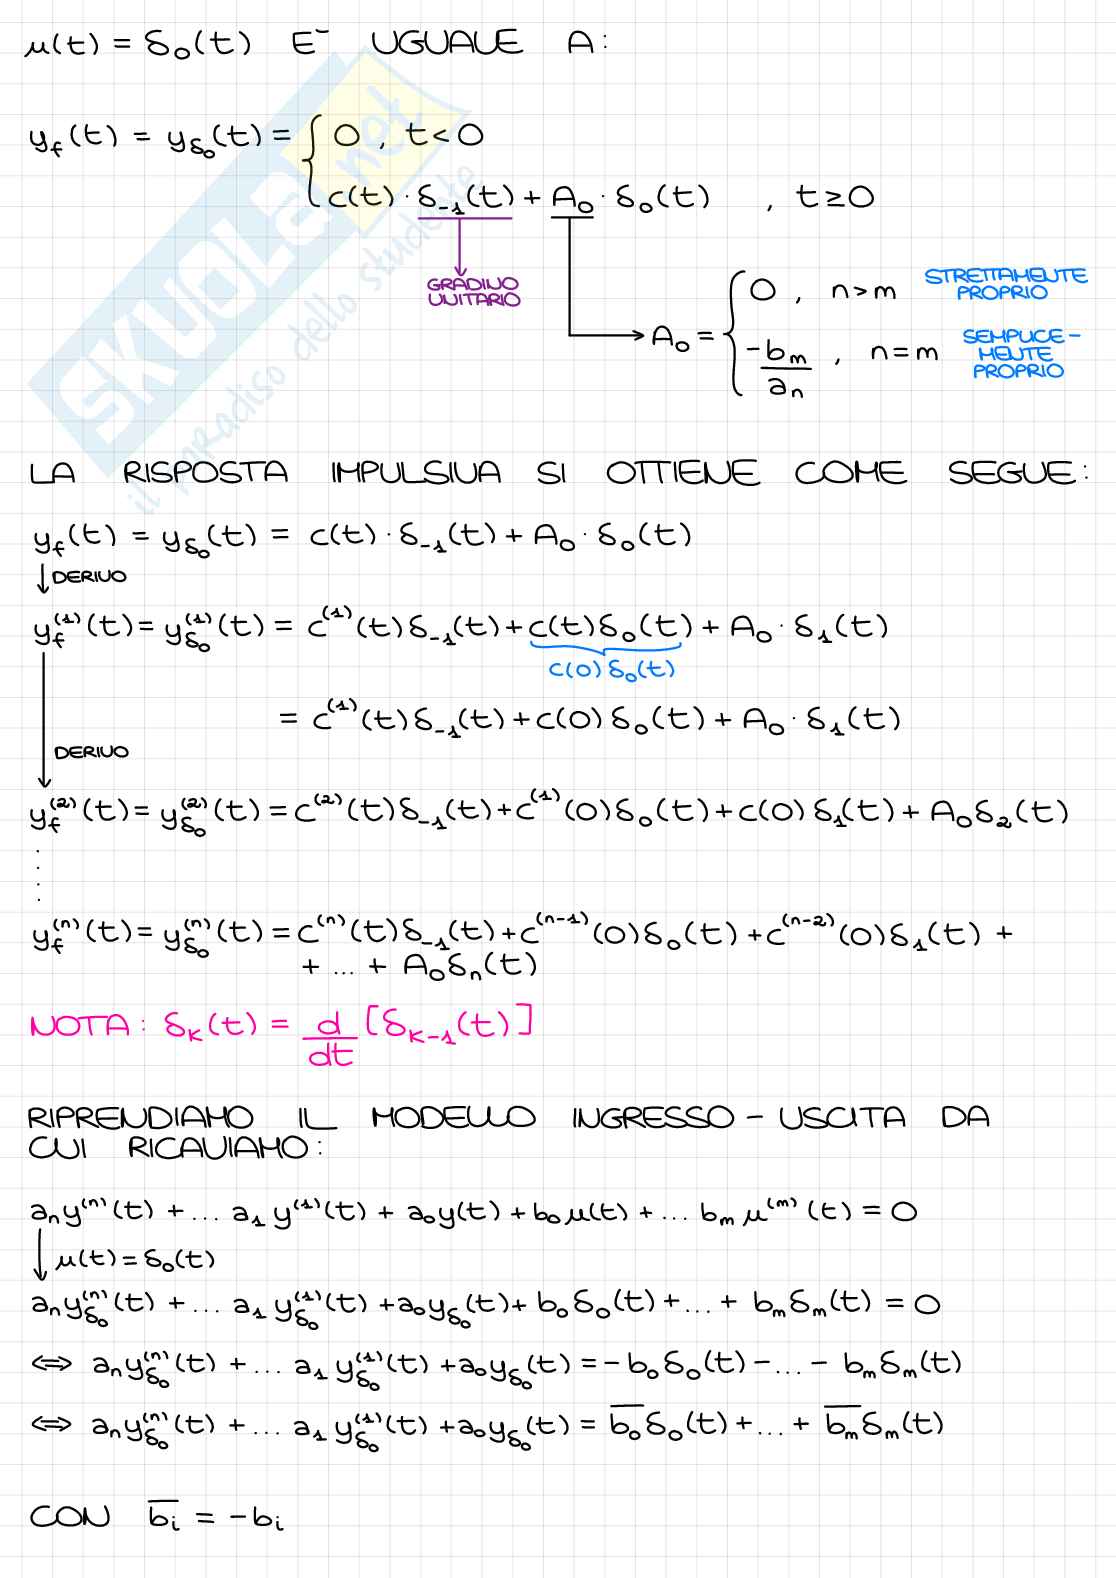 μ(t) = δ₀(t) E⁻ UGUALE A:
y_f(t) = y_δ₀(t) = { 0 , t < 0
c(t) · δ₋₁(t) + A₀ · δ₀(t) , t ≥ 0
GRADINO
UNITARIO
A₀ = { 0 , n > m STRETTAMENTE PROPRIO
-b_m / a_n , n = m SEMPLICE-
MENTE
PROPRIO
SKUOLA.net
il paradiso dello studente
LA RISPOSTA IMPULSIVA SI OTTIENE COME SEGUE:
y_f(t) = y_δ₀(t) = c(t) · δ₋₁(t) + A₀ · δ₀(t)
↓ DERIVO
y_f⁽¹⁾(t) = y_δ₀⁽¹⁾(t) = c⁽¹⁾(t) δ₋₁(t) + c(t) δ₀(t) + A₀ · δ₁(t)
c(0) δ₀(t)
= c⁽¹⁾(t) δ₋₁(t) + c(0) δ₀(t) + A₀ · δ₁(t)
↓ DERIVO
y_f⁽²⁾(t) = y_δ₀⁽²⁾(t) = c⁽²⁾(t) δ₋₁(t) + c⁽¹⁾(0) δ₀(t) + c(0) δ₁(t) + A₀ δ₂(t)
⋮
y_f⁽ⁿ⁾(t) = y_δ₀⁽ⁿ⁾(t) = c⁽ⁿ⁾(t) δ₋₁(t) + c⁽ⁿ⁻¹⁾(0) δ₀(t) + c⁽ⁿ⁻²⁾(0) δ₁(t) +
+ ... + A₀ δ_n(t)
NOTA: δ_K(t) = d/dt [δ_K-1(t)]
RIPRENDIAMO IL MODELLO INGRESSO - USCITA DA
CUI RICAVIAMO:
a_n y⁽ⁿ⁾(t) + ... a₁ y⁽¹⁾(t) + a₀ y(t) + b₀ μ(t) + ... b_m μ⁽ᵐ⁾(t) = 0
↓ μ(t) = δ₀(t)
a_n y_δ₀⁽ⁿ⁾(t) + ... a₁ y_δ₀⁽¹⁾(t) + a₀ y_δ₀(t) + b₀ δ₀(t) + ... + b_m δ_m(t) = 0
⇔ a_n y_δ₀⁽ⁿ⁾(t) + ... a₁ y_δ₀⁽¹⁾(t) + a₀ y_δ₀(t) = -b₀ δ₀(t) - ... - b_m δ_m(t)
⇔ a_n y_δ₀⁽ⁿ⁾(t) + ... a₁ y_δ₀⁽¹⁾(t) + a₀ y_δ₀(t) = b̅₀ δ₀(t) + ... + b̅_m δ_m(t)
CON b̅_i = -b_i